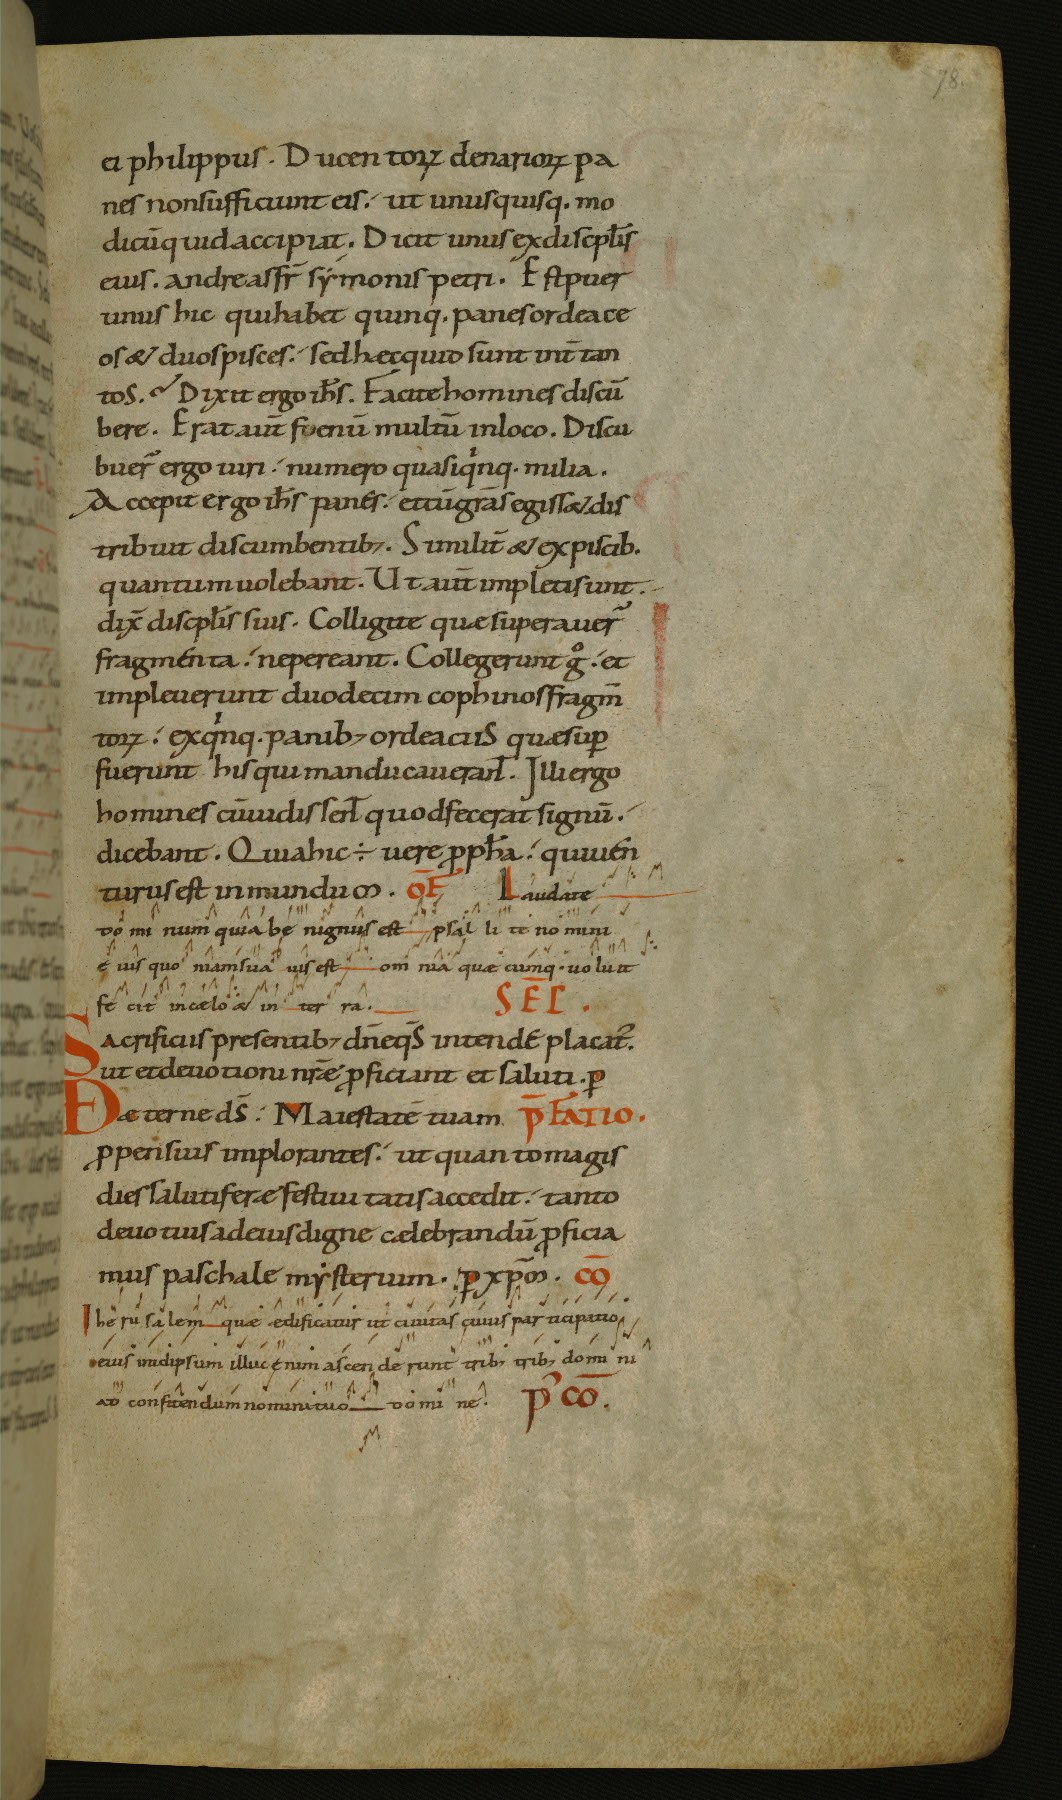 78.
ei philippus. Ducentoꝝ denarioꝝ pa
nes nonsufficiunt eis. ut unusquisq. mo
dicūquid accipiat. Dicit unus exdiscipl̄is
eius. andreas fr̄ sẏmonis petri. Est puer
unus hic qui habet quinq. panes ordeace
os & duos pisces. sed hæc quid sunt int̄ tan
tos. Dixit ergo ih̄s. Facite homines discū
bere. Erat aūt foenū multū inloco. Discu
buer̄ ergo uiri. numero quasi qͥnq. milia.
Accepit ergo ih̄s panes. et cū gr̄as egiss& dis
tribuit discumbentibꝫ. Similit̄ & ex piscib.
quantum uolebant. Ut aūt impleti sunt.
dix̄ discipl̄is suis. Colligite quæ superauer̄
fragmenta. ne pereant. Collegerunt gͦ. et
impleuerunt duodecim cophinos fragm̄
toꝝ. ex qͥnq. panibꝫ ordeaciis quæ suꝑ
fuerunt his qui manducauerant. Illi ergo
homines cū uidissent quod fecerat signū.
dicebant. Quia hic ÷ uere ꝓph̄a. qui uen
turus est in mundum. OF̄ Laudate
do mi num quia be nignus est psal li te no mini
e ius quo niam sua uis est om nia quæ cumq. uo lu it
fe cit in cælo & in ter ra. SEC̄.
Sacrificiis presentibꝫ dn̄e qs̄ intende placat᷒.
ut et deuotioni nr̄æ ꝓficiant et saluti. ꝑ
Dæ terne ds̄. Maiestatē tuam P̄FATIO.
ꝓpensius implorantes. ut quanto magis
dies salutiferæ festiuitatis accedit. tanto
deuotius ad eius digne cælebrandū ꝓficia
mus paschale mẏsterium. ꝑ xp̄m. CŌ
Ihe ru sa lem quæ ædificatur ut ciuitas cuius par ticipatio
eius inidipsum illuc enim ascen de runt tribꝫ tribꝫ do mi ni
ad confitendum nomini tuo do mi ne. P̄ CŌ.